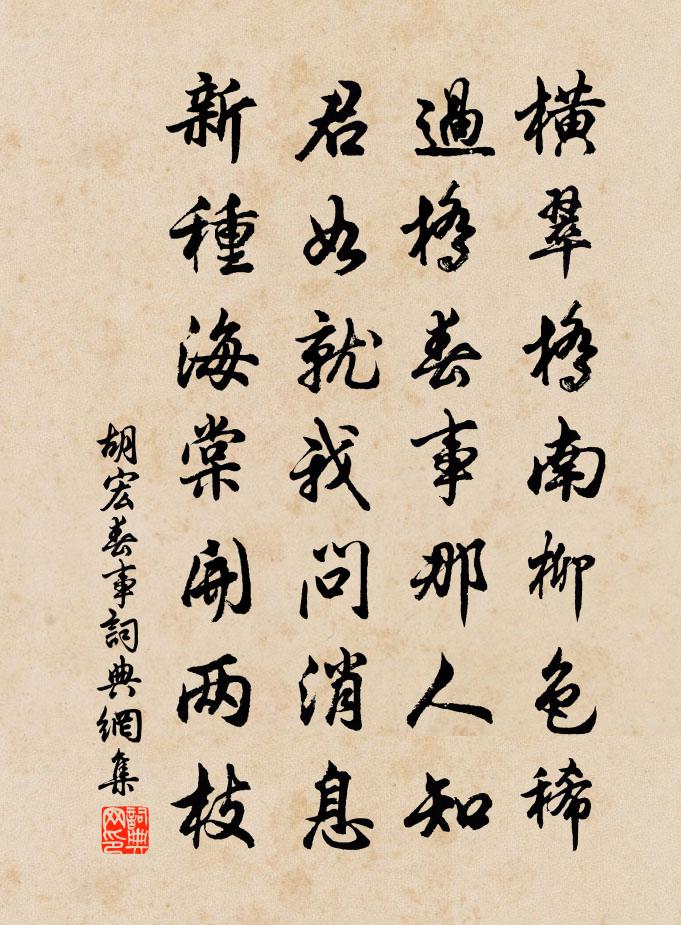 橫翠橋南柳色稀
過橋春事那人知
君如就我問消息
新種海棠開两枝
胡宏春事詞典網集
詞典网印